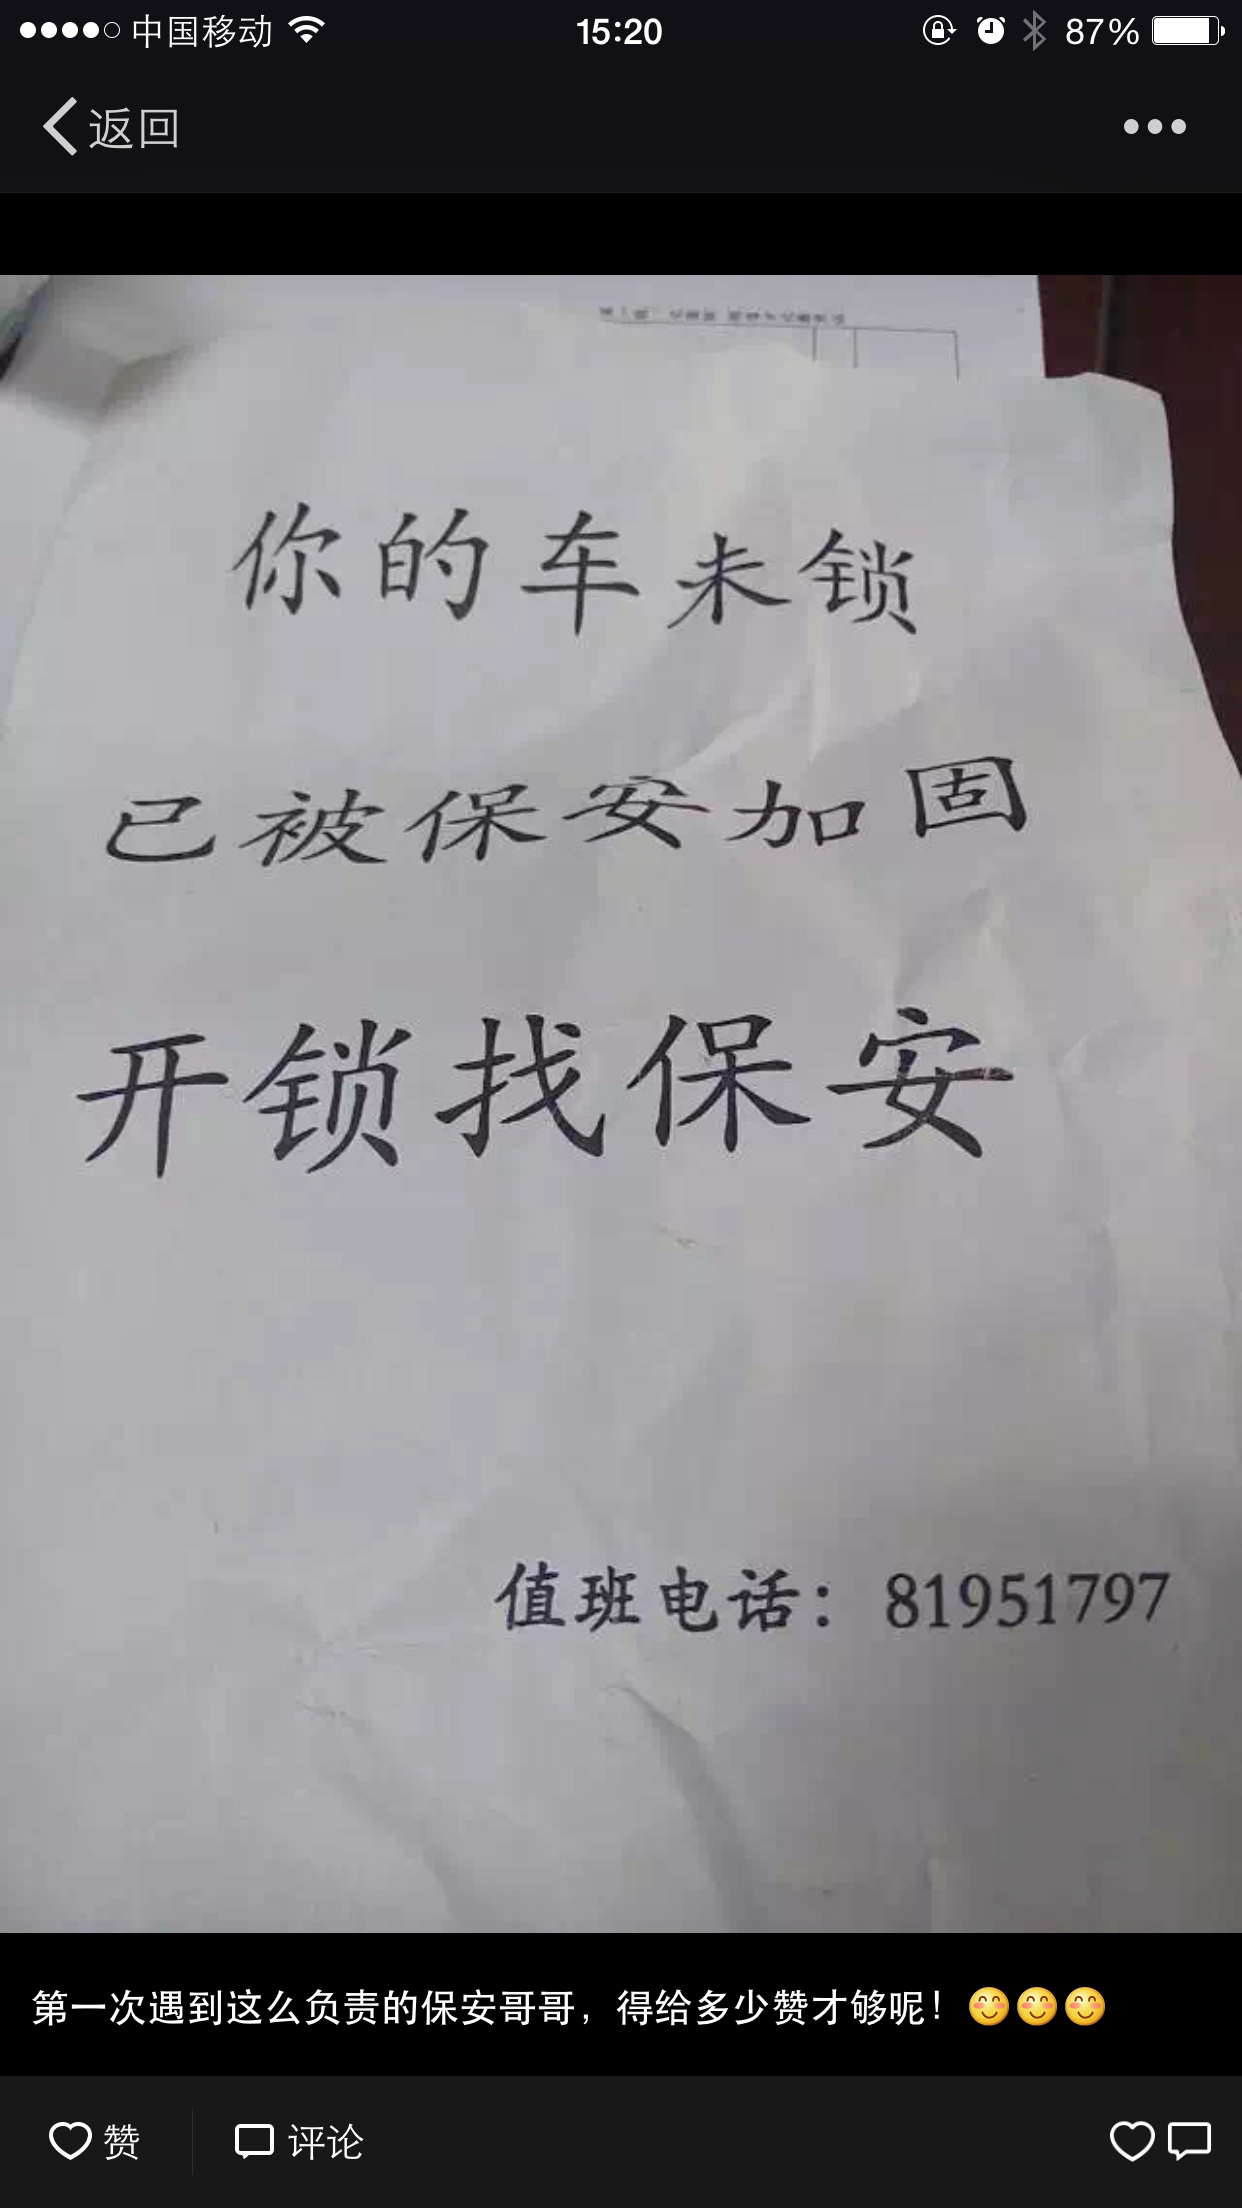 中国移动 15:20 87%
返回
你的车未锁
已被保安加固
开锁找保安
值班电话：81951797
第一次遇到这么负责的保安哥哥，得给多少赞才够呢！😊😊😊
赞 评论